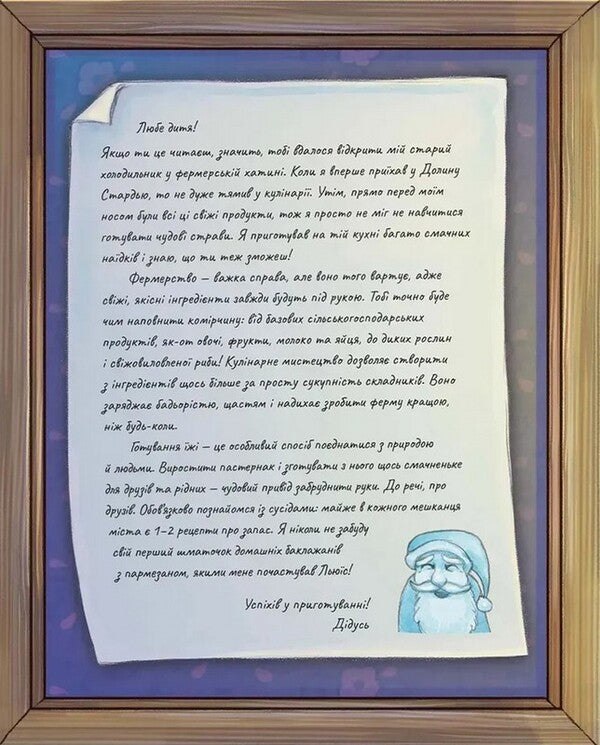 Любе дитя!
Якщо ти це читаєш, значить, тобі вдалося відкрити мій старий
холодильник у фермерській хатині. Коли я вперше приїхав у Долину
Стардью, то не дуже тямив у кулінарії. Утім, прямо перед моїм
носом були всі ці свіжі продукти, тож я просто не міг не навчитися
готувати чудові страви. Я приготував на тій кухні багато смачних
наїдків і знаю, що ти теж зможеш!
Фермерство – важка справа, але воно того вартує, адже
свіжі, якісні інгредієнти завжди будуть під рукою. Тобі точно буде
чим наповнити комірчину: від базових сільськогосподарських
продуктів, як-от овочі, фрукти, молоко та яйця, до диких рослин
і свіжовиловленої риби! Кулінарне мистецтво дозволяє створити
з інгредієнтів щось більше за просту сукупність складників. Воно
заряджає бадьорістю, щастям і надихає зробити ферму кращою,
ніж будь-коли.
Готування їжі – це особливий спосіб поєднатися з природою
й людьми. Виростити пастернак і зготувати з нього щось смачненьке
для друзів та рідних – чудовий привід забруднити руки. До речі, про
друзів. Обов'язково познайомся із сусідами: майже в кожного мешканця
міста є 1–2 рецепти про запас. Я ніколи не забуду
свій перший шматочок домашніх баклажанів
з пармезаном, якими мене почастував Льюїс!
Успіхів у приготуванні!
Дідусь